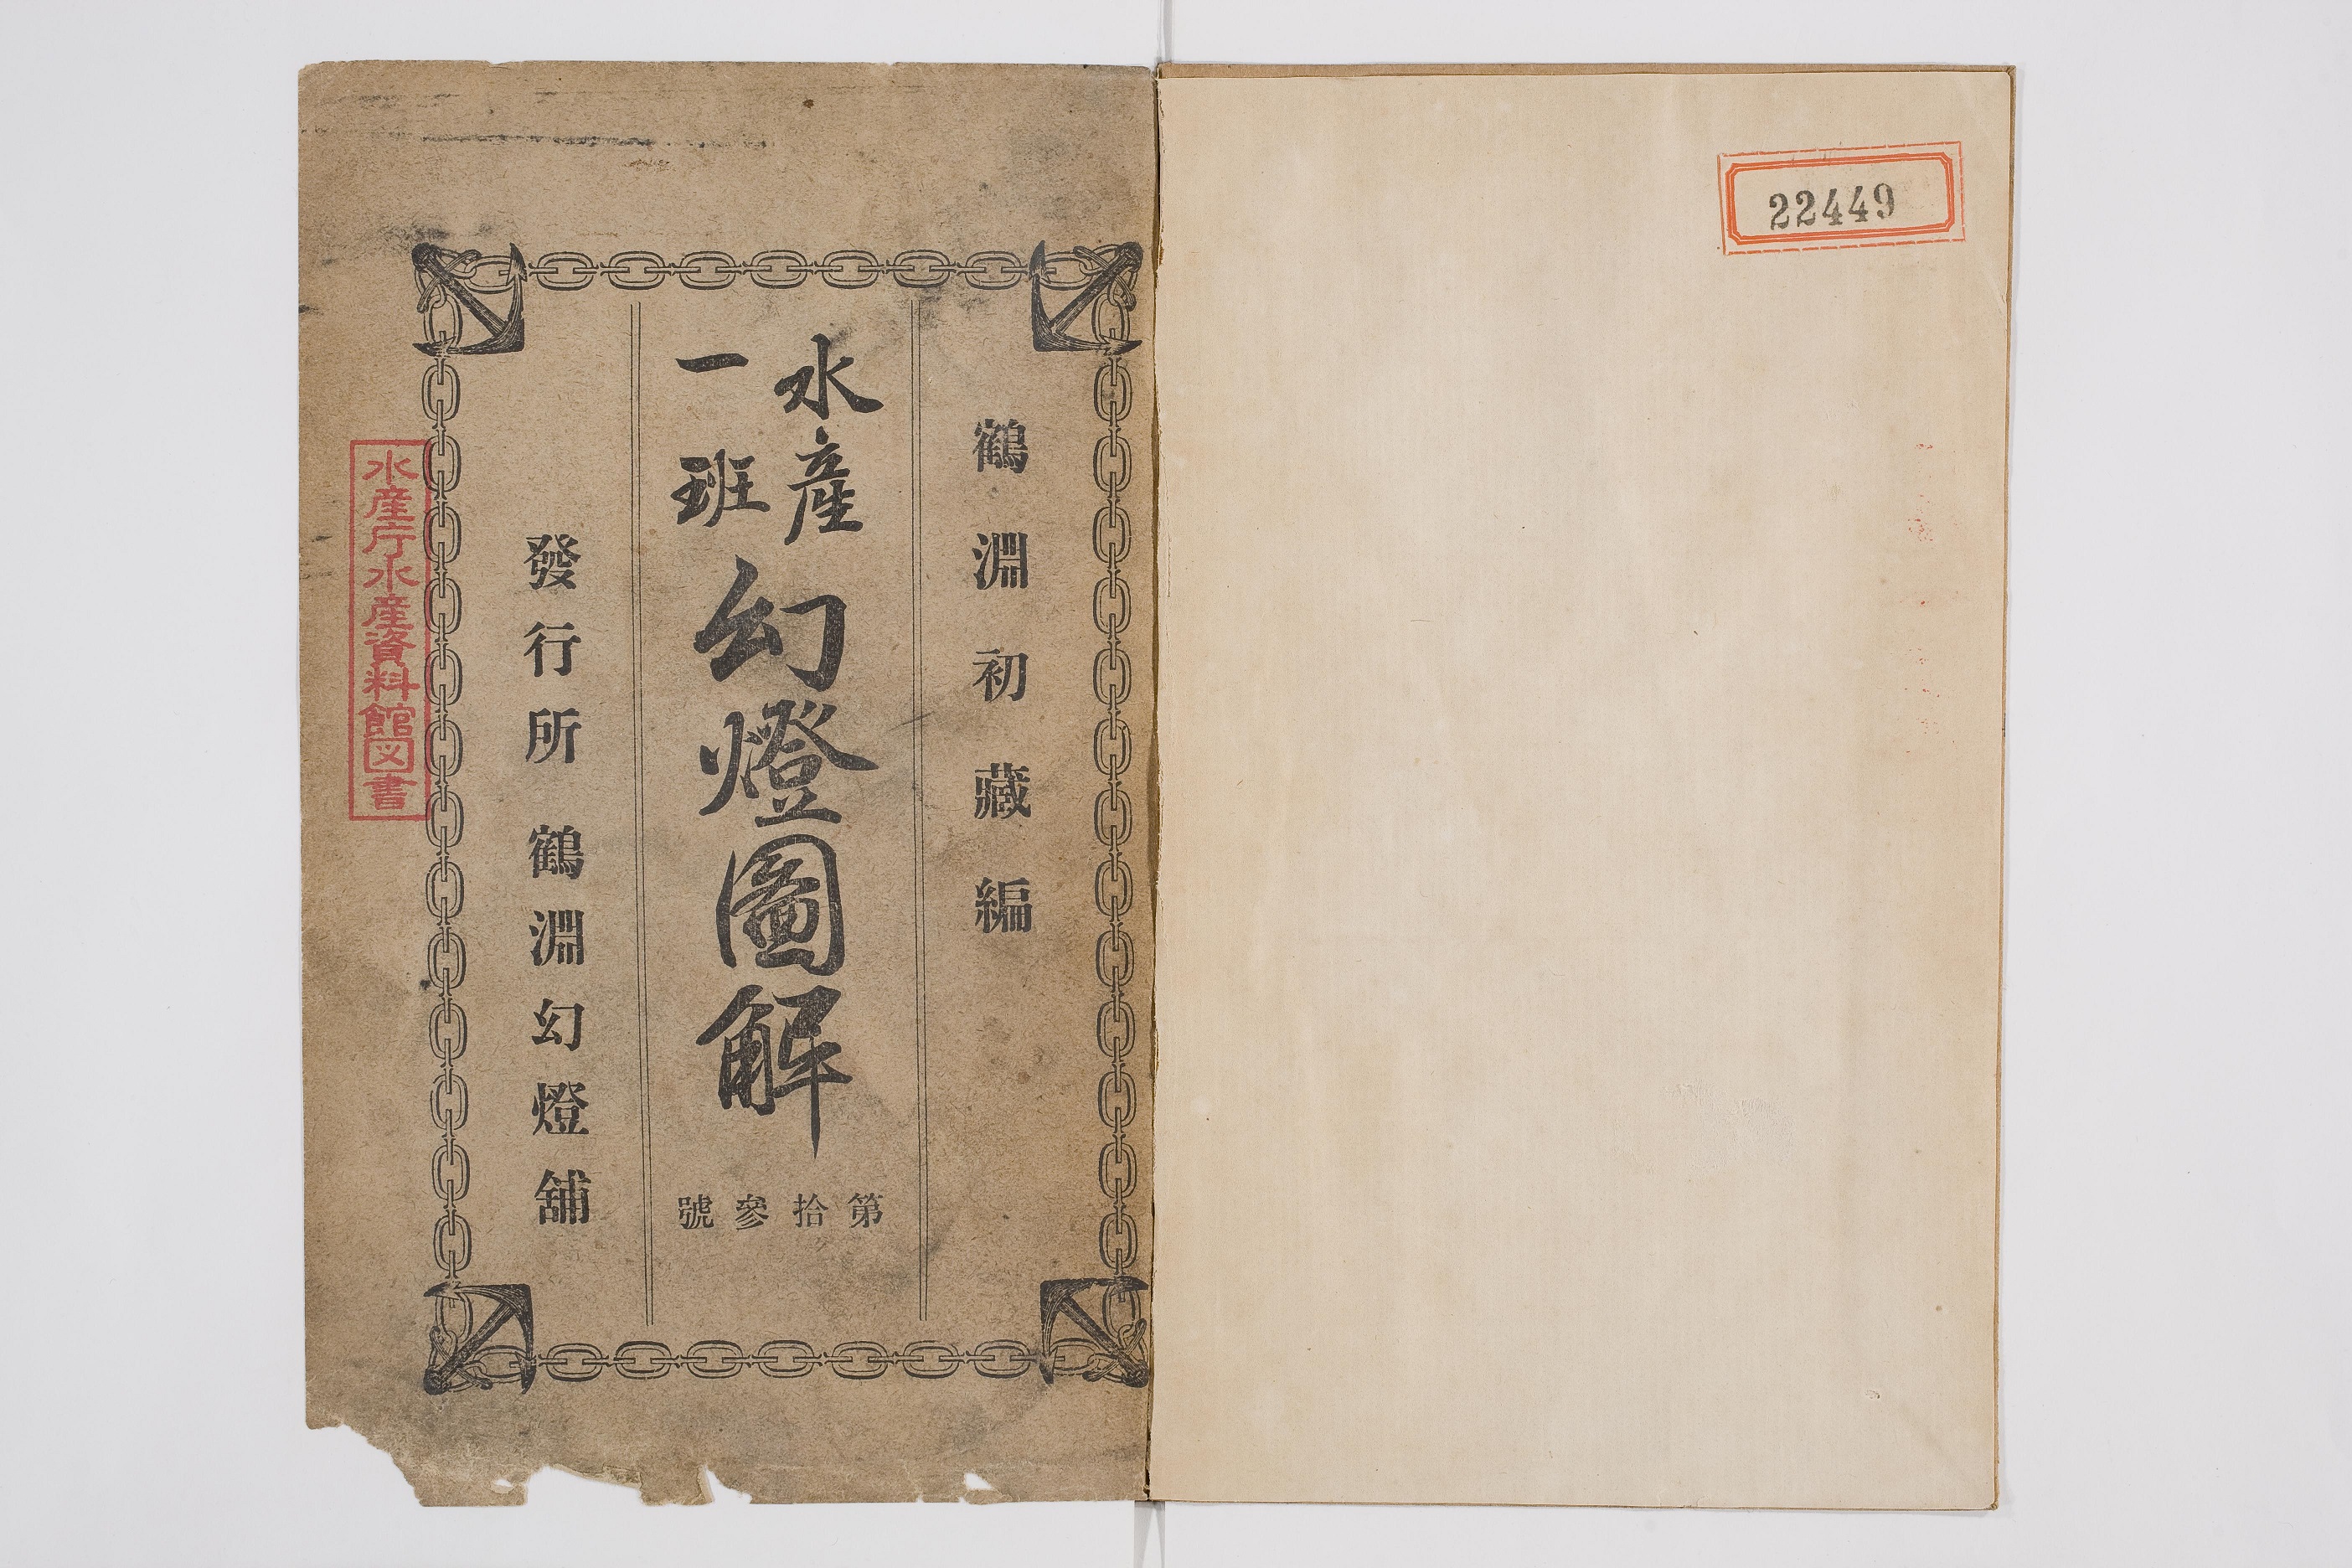 22449
鶴淵初藏編
水產
一班
幻燈圖解
第拾參號
發行所 鶴淵幻燈舖
水産庁水産資料館図書